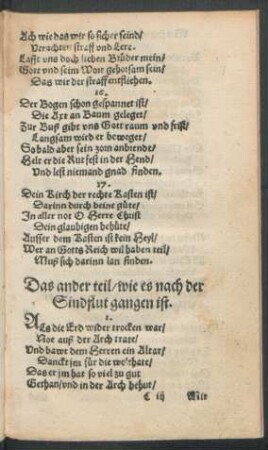 Ach wie das wir so sicher seind/
Verachten straff und Lere.
Lasst uns doch lieben Brüder mein/
Gott und seim Wort gehorsam sein/
Das wir der straff entfliehen.
16.
Der Bogen schon gespannet ist/
Die Axt an Baum geleget/
Zur Buß gibt vns Gott raum und frist/
Langsam wird er beweget/
So bald aber sein zorn anbrendt/
Helt er die Rut fest in der Hend/
Und lest niemand gnad finden.
17.
Dein Kirch der rechte Kasten ist/
Darinn durch deine güte/
In aller not O Herre Christ
Dein glaubigen behüte/
Ausser dem Kasten ist kein Heyl/
Wer an Gotts Reich wil haben teil/
Muß sich darinn lan finden.
Das ander teil/wie es nach der
Sindflut gangen ist.
1.
Als die Erd wider trocken war/
Noe auß der Arch tratt/
Und bawt dem Herren ein Altar/
Danckt jm für die wolthate/
Das er jm hat so viel zu gut
Gethan/und in der Arch behut/
C iij Mit